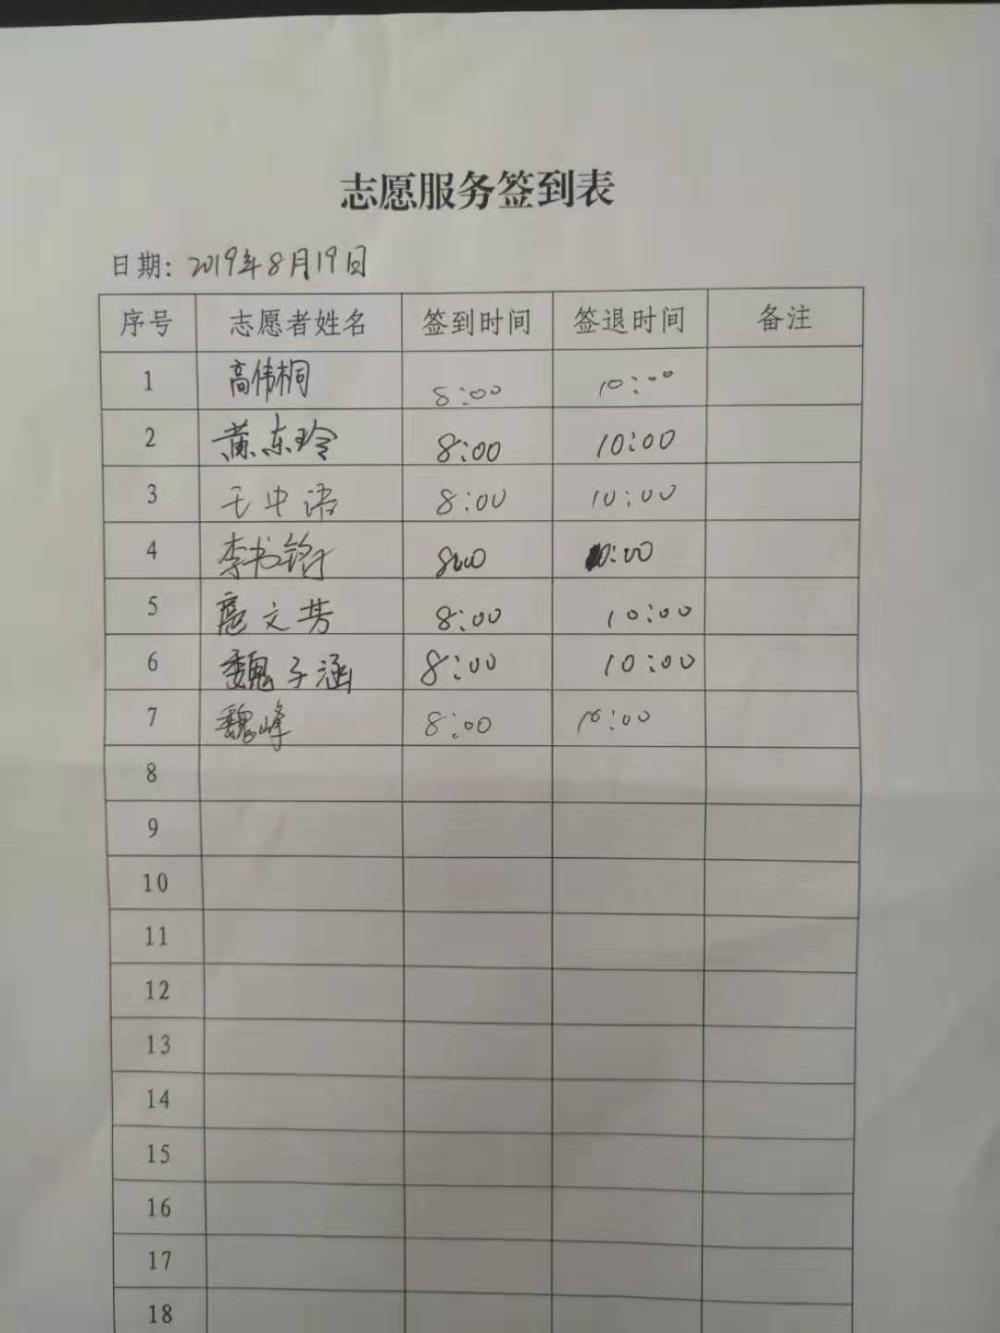 志愿服务签到表
日期: 2019年8月19日
序号 志愿者姓名 签到时间 签退时间 备注
1 高伟桐 8:00 10:00
2 黄东玲 8:00 10:00
3 王中语 8:00 10:00
4 李书 8:00 10:00
5 文芳 8:00 10:00
6 魏子涵 8:00 10:00
7 魏峰 8:00 10:00
8
9
10
11
12
13
14
15
16
17
18